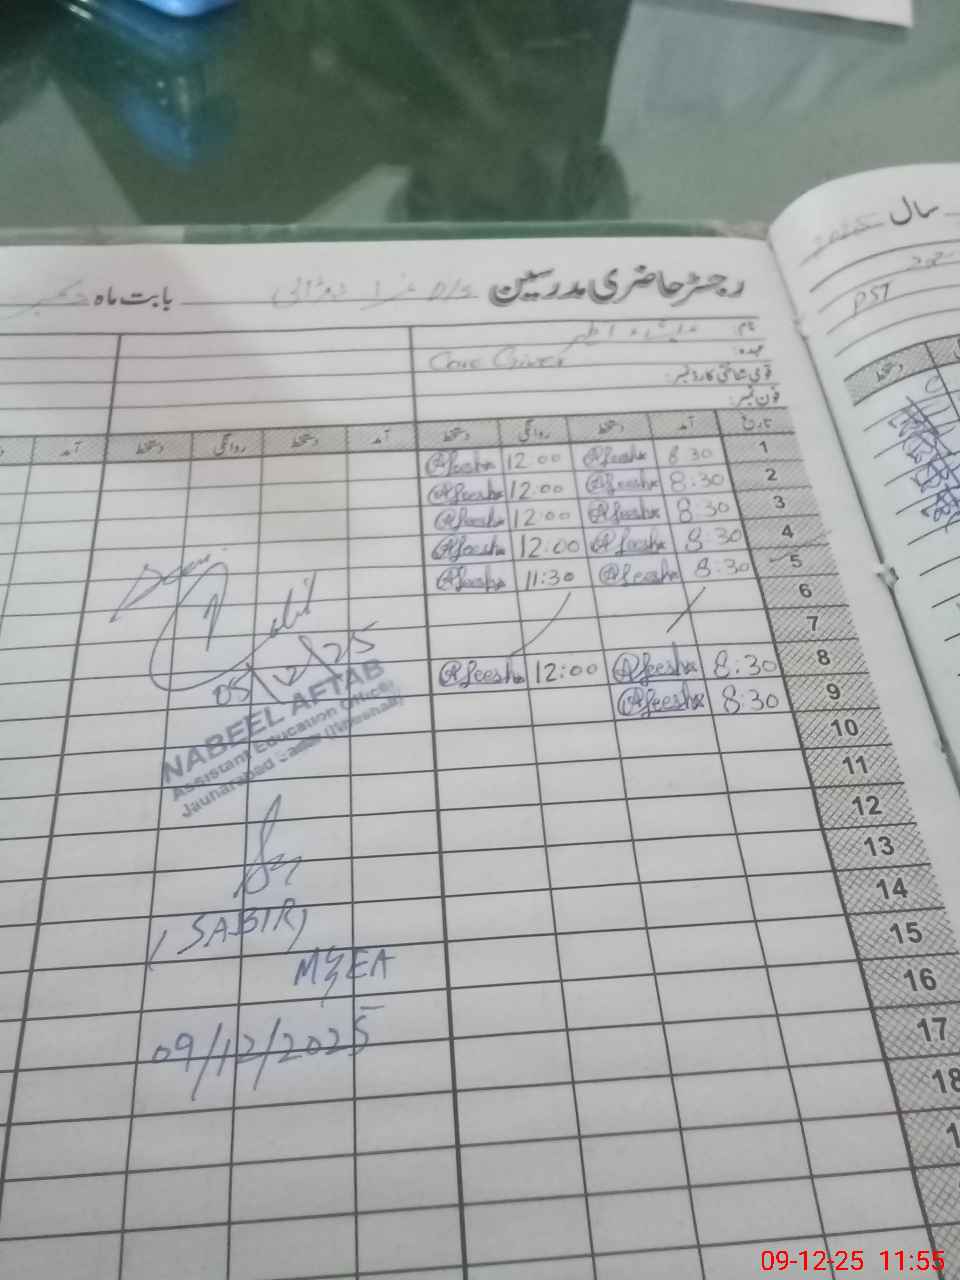 سال 2025
رجسٹر حاضری مدرسین
بابت ماہ دسمبر
PST
نام:
عہدہ: Care Giver
قومی شناختی کارڈ نمبر:
فون نمبر:
تاریخ آمد دستخط روانگی دستخط آمد دستخط روانگی دستخط آمد
دستخط
1 8 30 Afeesha 12:00 Afeesha
2 8:30 Afeesha 12:00 Afeesha
3 8:30 Afeesha 12:00 Afeesha
4 8:30 Afeesha 12:00 Afeesha
5 8:30 Afeesha 11:30 Afeesha
6
7
8 8:30 Afeesha 12:00 Afeesha
9 8:30 Afeesha
10
11
12
13
14
15
16
17
18
05/12/25
NABEEL AFTAB
Assistant Education Officer
(SABIR)
M&EA
09/12/2025
09-12-25 11:55